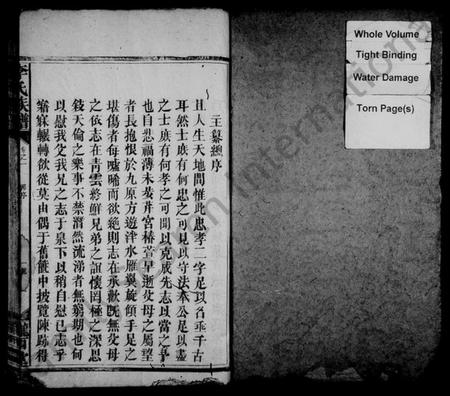 主纂總序
且人生天地間惟此忠孝二字足以名垂千古
耳然士庶有何忠之可見以守法奉公足以盡
之士庶有何孝之可聞以克成先志以當之予
也自悲福薄未芸芹宮椿萱早逝父母之屬望
者長抱恨於九原方遊泮水雁翼旋傾手足之
堪傷者每噓唏而欲絕則志在承歡既無父母
之依志在青雲將鮮兄弟之誼懷罔極之深恩
錢天倫之樂事不禁潸然流涕者無窮期也何
以慰我父我兄之志于泉下以稍自慰已志乎
寤寐輾轉欲從莫由偶于舊篋中披覽陳跡得
氏族譜
Whole Volume
Tight Binding
Water Damage
Torn Page(s)
International